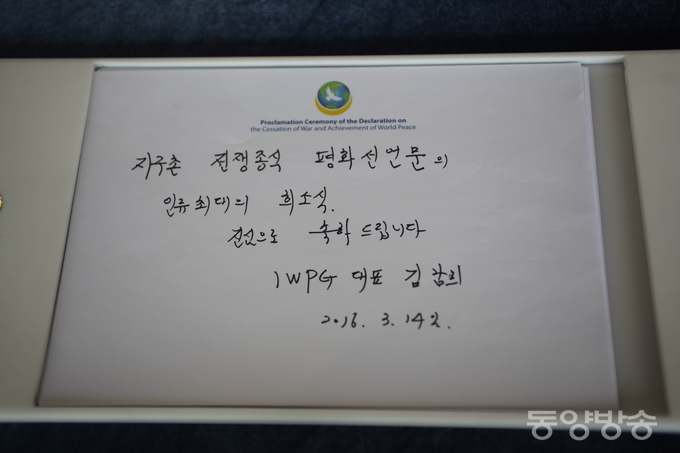 Proclamation Ceremony of the Declaration on
the Cessation of War and Achievement of World Peace
지구촌 전쟁종식 평화선언문의
인류최대의 희소식.
진심으로 축하드립니다
IWPG 대표 김남희
2016. 3. 14
동양방송